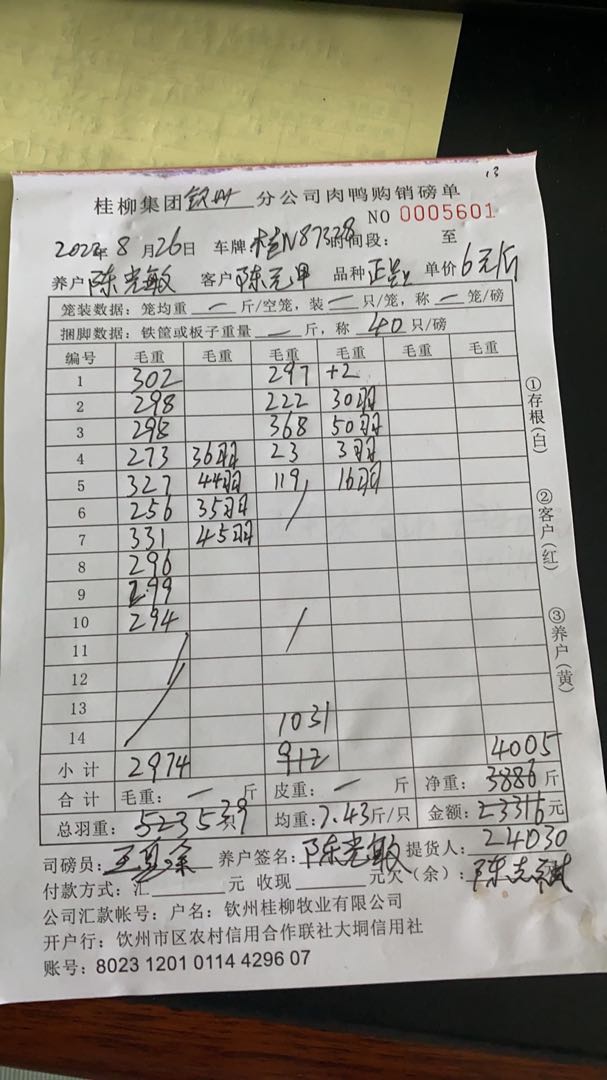 13
桂柳集团钦州分公司肉鸭购销磅单
NO 0005601
2022年8月26日 车牌 桂N87328 时间段： 至
养户 陈光敏 客户 品种 单价 6元/斤
笼装数据：笼均重 一 斤/空笼，装 一 只/笼，称 一 笼/磅
捆脚数据：铁筐或板子重量 一 斤，称 40 只/磅
编号 毛重 毛重 毛重 毛重 毛重 毛重
1 302 297 +2
2 298 222 30羽
3 298 368 50羽
4 273 36羽 23 3羽
5 327 44羽 119 16羽
6 256 35羽
7 331 45羽
8 296
9 299
10 294
11
12
13
14 1031
小计 2974 912 4005
合计 毛重：一 斤 皮重：一 斤 净重：3886斤
总羽重：523 539 只 均重：7.43斤/只 金额：23316元
司磅员： 养户签名：陈光敏 提货人：24030
付款方式：汇 元 收现 元欠（余）：
公司汇款帐号：户名：钦州桂柳牧业有限公司
开户行：钦州市区农村信用合作联社大垌信用社
账号：8023 1201 0114 4296 07
①存根（白）
②客户（红）
③养户（黄）